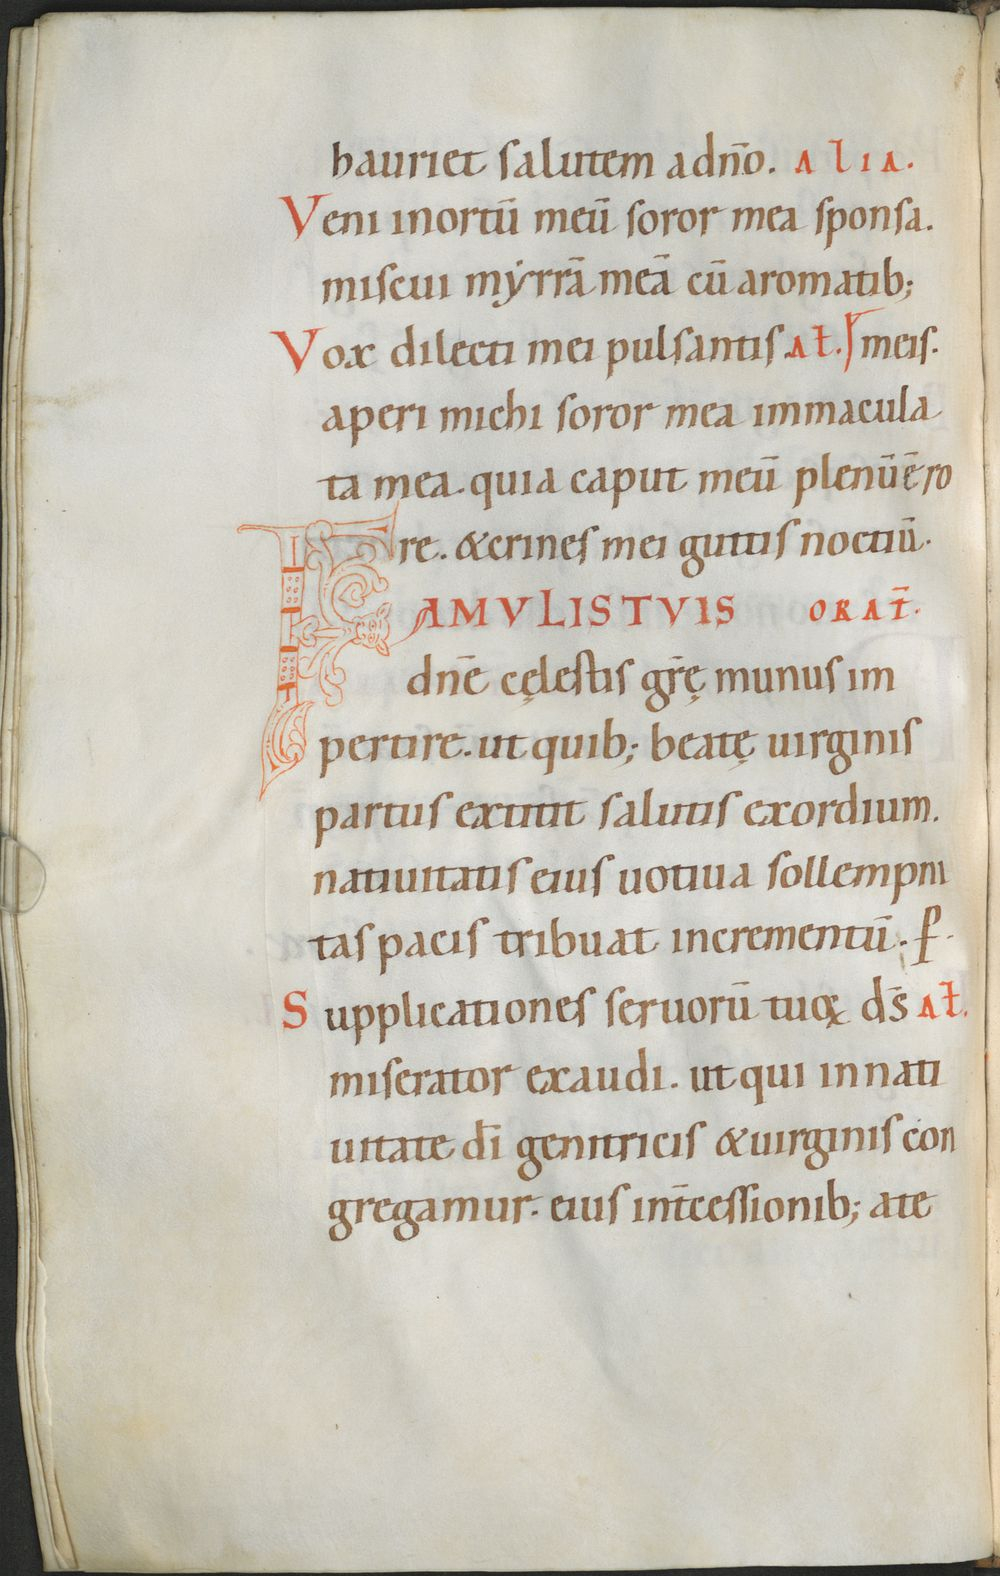 hauriet salutem a dn̄o. ALIA.
Veni in ortū meū soror mea sponsa.
miscui myrrā meā cū aromatib;
Vox dilecti mei pulsantis. Ał. meis.
aperi michi soror mea immacula
ta mea. quia caput meū plenū ē ro
re. & crines mei guttis noctiū.
FAMVLIS TVIS ORAT̄.
dn̄e cęlestis gr̄ę munus im
pertire. ut quib; beatę uirginis
partus extitit salutis exordium.
natiuitatis eius uotiua sollempni
tas pacis tribuat incrementū. P.
Supplicationes seruorū tuoꝝ ds̄ Ał.
miserator exaudi. ut qui in nati
uitate dī genitricis & uirginis con
gregamur. eius int̄cessionib; a te